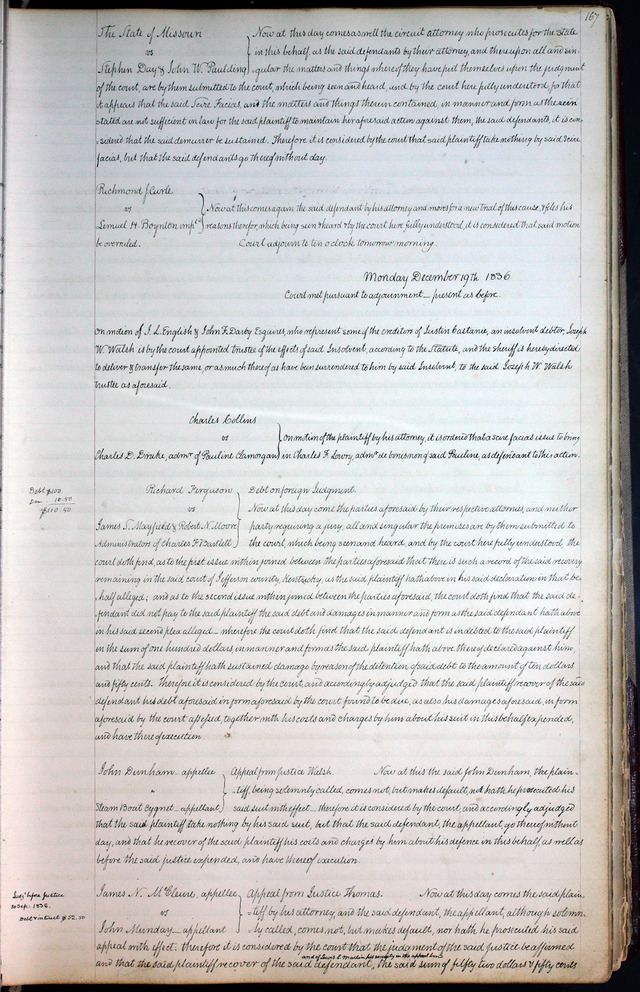 167
The State of Missouri
vs
Stephen Day & John W. Paulding
Now at this day comes as well the circuit attorney who prosecutes for the State
in this behalf, as the said defendants by their attorney, and thereupon all and sin-
gular the matters and things whereof they have put themselves upon the judgment
of the court, are by them submitted to the court, which being seen and heard, and by the court here fully understood, for that
it appears that the said Scire Facias, and the matters and things therein contained, in manner and form as therein
stated are not sufficient in law for the said plaintiff to maintain her aforesaid action against them, the said defendants, it is con-
sidered that the said demurrer be sustained. Therefore it is considered by the court that said plaintiff take nothing by said Scire
facias, but that the said defendants go thereof without day.
Richmond J Curle
vs
Lemuel H. Boynton impl'd
Now at this comes again the said defendant by his attorney and moves for a new trial of this cause, & files his
reasons therefor, which being seen & heard & by the court here fully understood, it is considered that said motion
be overruled. Court adjourn to ten o clock tomorrow morning.
Monday December 19th 1836
Court met pursuant to adjournment — present as before.
On motion of J. L. English & John F. Darby Esquires, who represent some of the creditors of Justin Castanie, an insolvent debtor, Joseph
W. Walsh is by the court appointed trustee of the effects of said Insolvent, according to the Statute, and the Sheriff is hereby directed
to deliver & transfer the same, or as much thereof as have been surrendered to him by said Insolvent, to the said Joseph W. Walsh
trustee as aforesaid.
Charles Collins
vs
Charles D. Drake, admor of Pauline Clamorgan
On motion of the plaintiff by his attorney, it is ordered that a scire facias issue to bring
in Charles F. Lowry, admr de bonis non of said Pauline, as defendant to this action.
Debt $100.
Dam 10.50
$110.50
Richard Ferguson
vs
James S. Mayfield & Robert N. Moore
Administrators of Charles F Bartlett
Debt on foreign Judgment.
Now at this day come the parties aforesaid by their respective attornies, and neither
party requiring a jury, all and singular the premises are by them submitted to
the court, which being seen and heard, and by the court here fully understood, the
court doth find, as to the first issue within joined between the parties aforesaid that there is such a record of the said recovery
remaining in the said court of Jefferson county, Kentucky, as the said plaintiff hath above in his said declaration in that be-
half alleged; and as to the second issue within joined between the parties aforesaid, the court doth find that the said de-
fendant did not pay to the said plaintiff the said debt and damages in manner and form as the said defendant hath above
in his said second plea alleged — wherefore the court doth find that the said defendant is indebted to the said plaintiff
in the sum of one hundred dollars, in manner and form as the said plaintiff hath above thereof declared against him,
and that the said plaintiff hath sustained damage by reason of the detention of said debt to the amount of ten dollars
and fifty cents. Therefore it is considered by the court, and accordingly adjudged that the said plaintiff recover of the said
defendant his debt aforesaid in form aforesaid by the court found to be due, as also his damages aforesaid, in form
aforesaid by the court assessed, together with his costs and charges by him about his suit in this behalf expended,
and have thereof execution.
John Dunham — appellee
Steam Boat Cygnet — appellant
Appeal from Justice Walsh. Now at this the said John Dunham, the plain-
tiff, being solemnly called, comes not, but makes default, nor hath he prosecuted his
said suit with effect — therefore it is considered by the court, and accordingly adjudged
that the said plaintiff take nothing by his said suit, but that the said defendant, the appellant, go thereof without
day, and that he recover of the said plaintiff his costs and charges by him about his defence in this behalf, as well as
before the said justice expended, and have thereof execution.
Judgt before Justice
20 Sep. 1836.
Debt & intrst $52.50
James N. McCleure, appellee
vs
John Munday — appellant
Appeal from Justice Thomas. Now at this day comes the said plain-
tiff by his attorney, and the said defendant, the appellant, although solemn-
ly called, comes not, but makes default, nor hath he prosecuted his said
appeal with effect. therefore it is considered by the court that the judgment of the said Justice be affirmed
and of Lewis C Martin his security in the appeal bond
and that the said plaintiff recover of the said defendant, the said sum of fifty two dollars & fifty cents